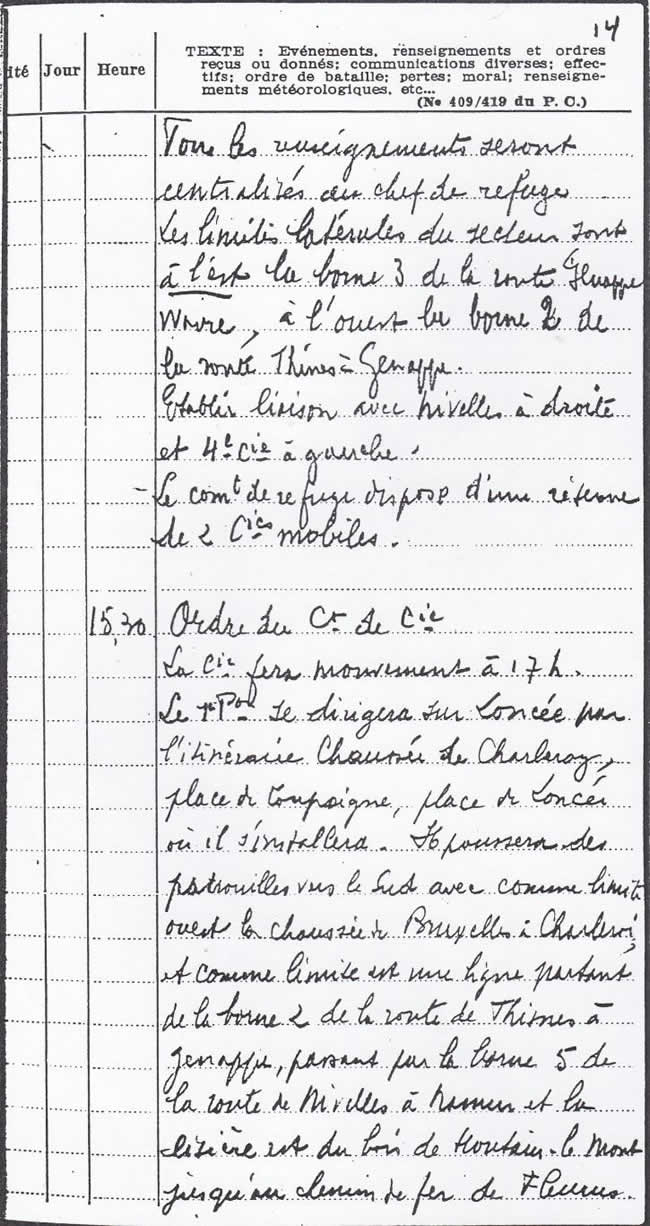 14
ité Jour Heure
TEXTE : Evénements, renseignements et ordres
reçus ou donnés; communications diverses; effec-
tifs; ordre de bataille; pertes; moral; renseigne-
ments météorologiques, etc...
(No 409/419 du P. C.)
Tous les renseignements seront
centralisés au chef de refuge
Les limites latérales du secteur sont
à l'est la borne 3 de la route Genappe
Wavre, à l'ouest la borne 2 de
la route Thines à Genappe.
Etablir liaison avec Nivelles à droite
et 4e Cie à gauche.
- Le comt de refuge dispose d'une réserve
de 2 Cies mobiles.
15,30 Ordre du Ct de Cie
La Cie fera mouvement à 17 h.
Le 1r Pon se dirigera sur Loncée par
l'itinéraire Chaussée de Charleroy,
place de, place de Loncée
où il s'installera. Il poussera des
patrouilles vers le Sud avec comme limite
ouest la chaussée de Bruxelles à Charleroi,
et comme limite est une ligne partant
de la borne 2 de la route de Thisnes à
Genappe, passant par la borne 5 de
la route de Nivelles à Namur et la
lisière est du bois de Houtain-le Mont
jusqu'au chemin de fer de Fleurus.